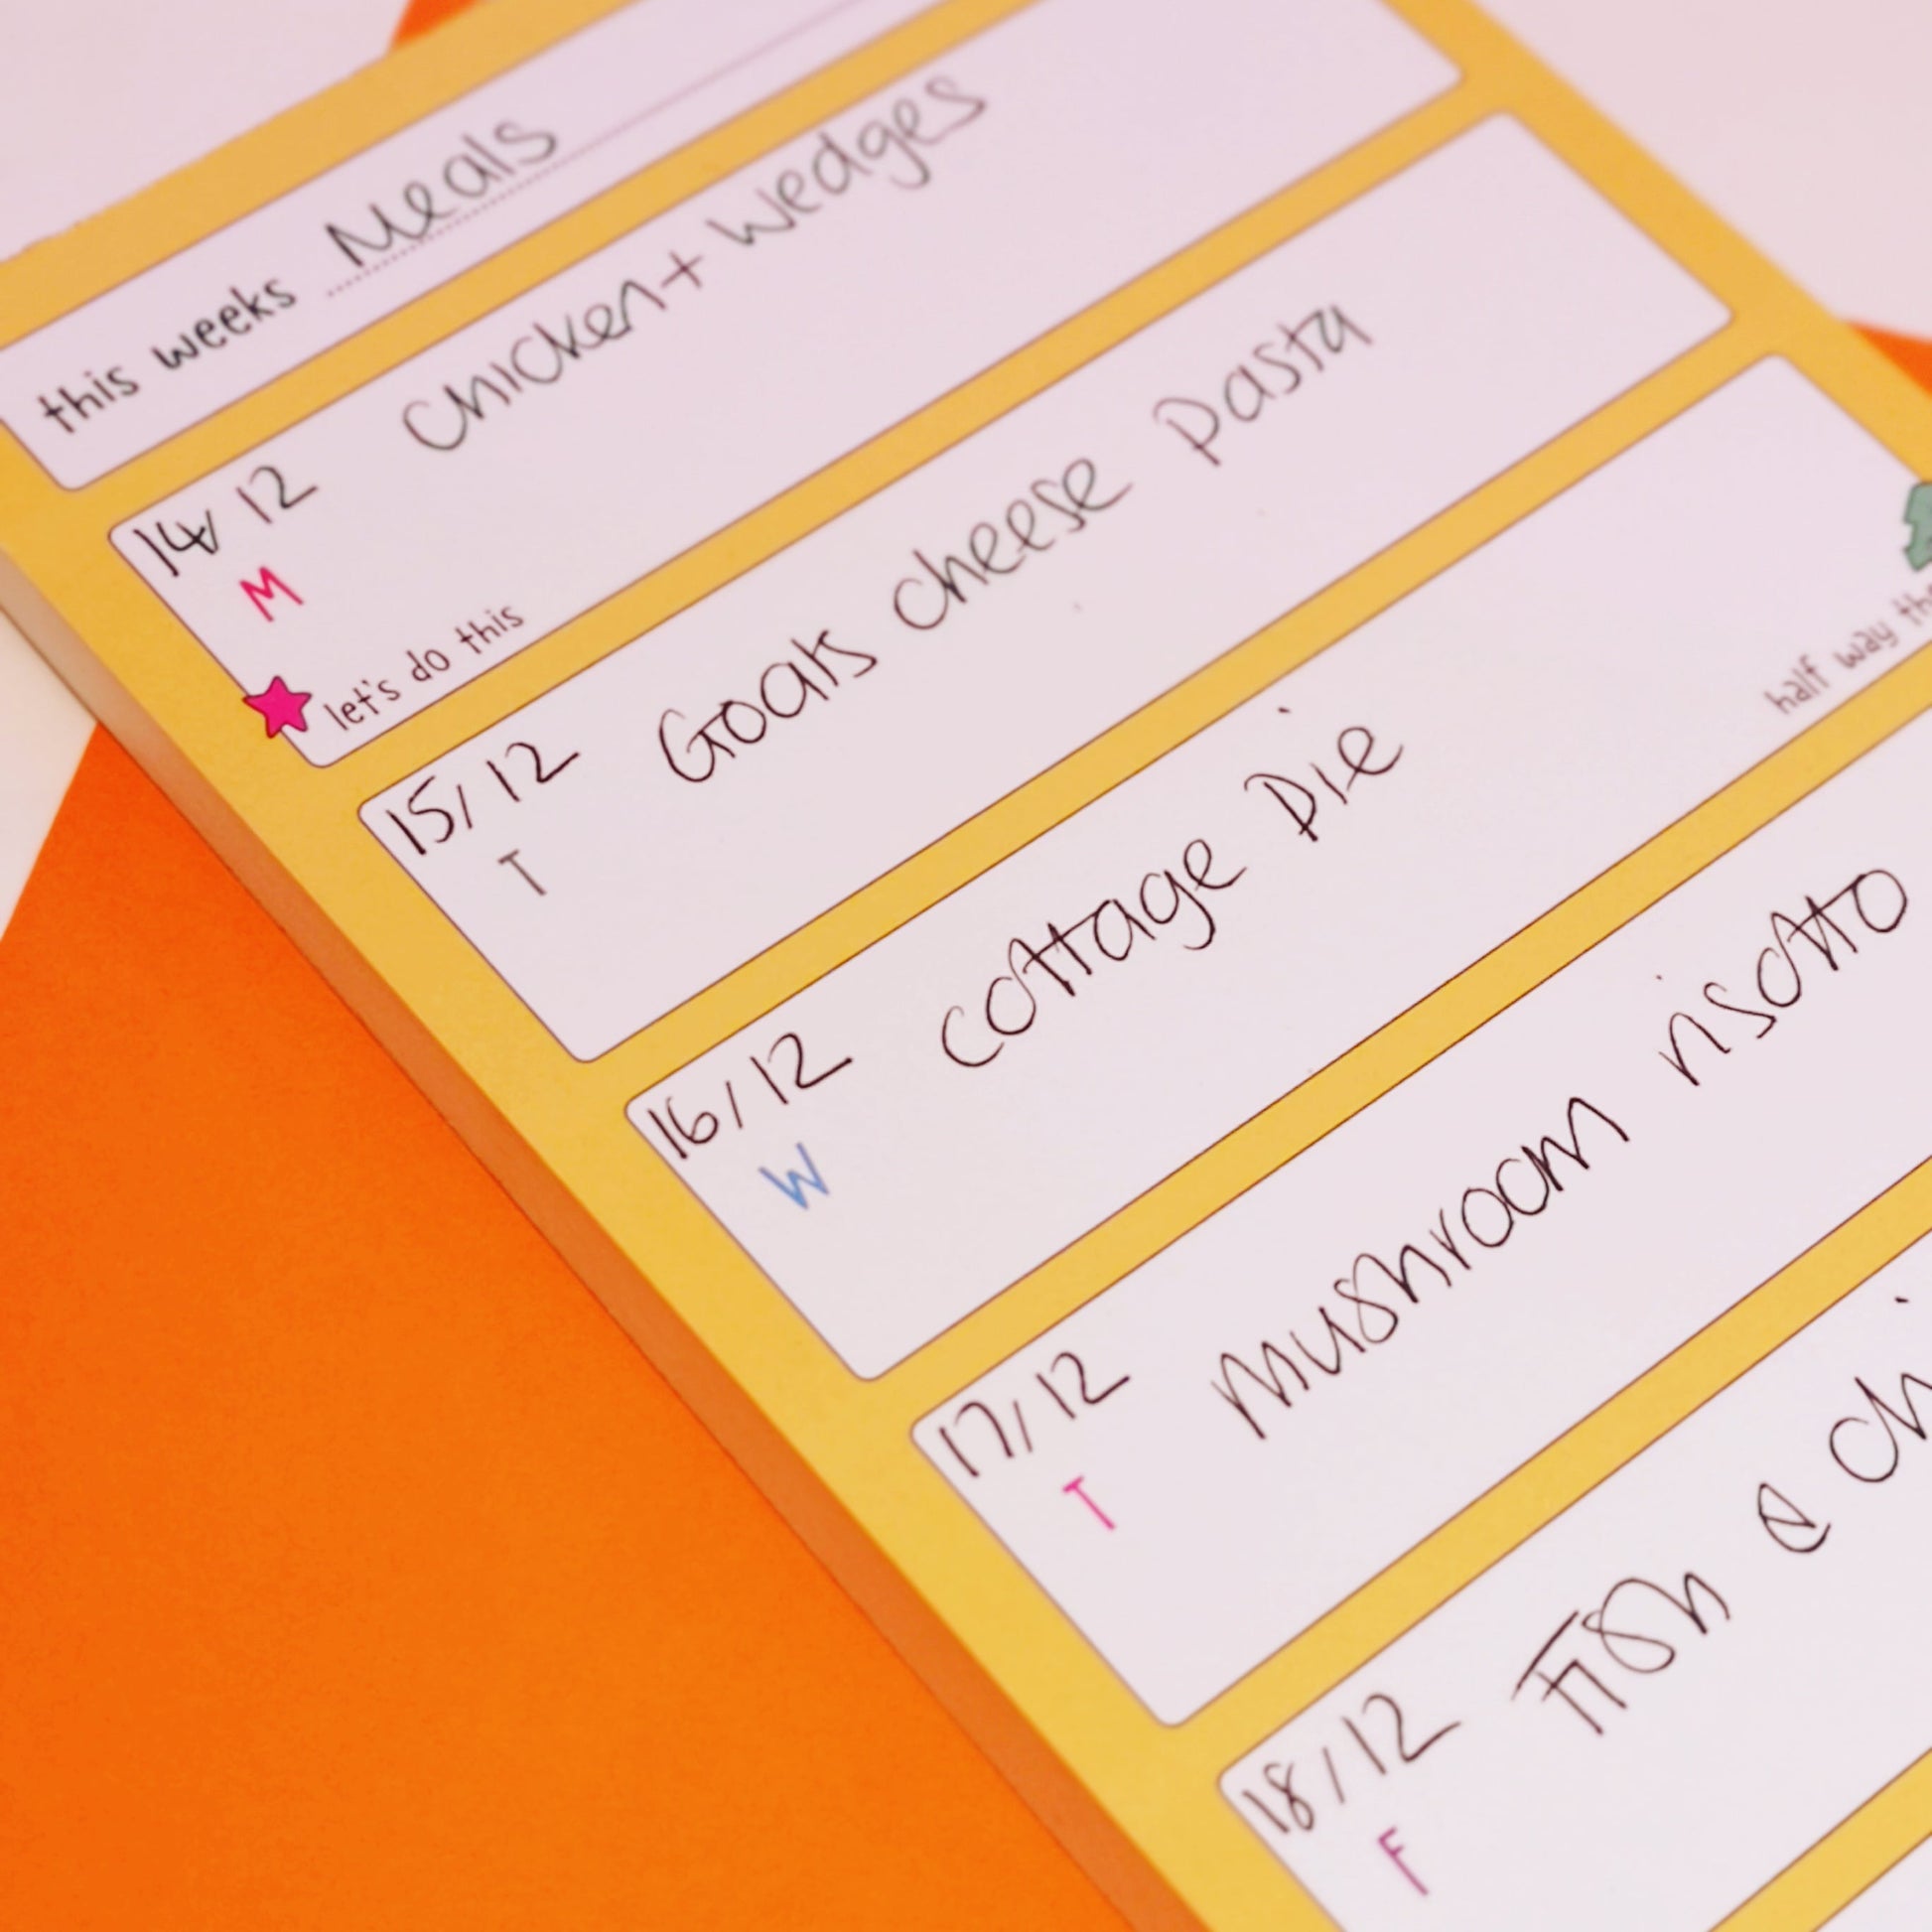 this weeks Meals
14/12 Chicken + wedges
M
let's do this
15/12 Goats cheese pasta
T
16/12 cottage pie
W
half way
17/12 mushroom risotto
T
18/12 Fish &
F